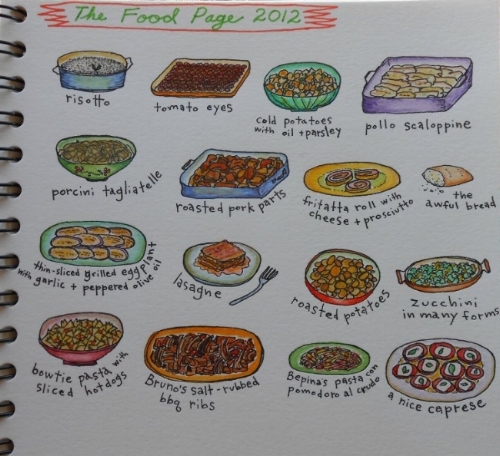 The Food Page 2012
risotto
tomato eyes
cold potatoes
with oil + parsley
pollo scaloppine
porcini tagliatelle
roasted pork parts
fritatta roll with
cheese + prosciutto
the
awful bread
thin-sliced grilled eggplant
with garlic + peppered olive oil
lasagne
roasted potatoes
zucchini
in many forms
bowtie pasta with
sliced hotdogs
Bruno's salt-rubbed
bbq ribs
Bepina's pasta con
pomodoro al crudo
a nice caprese